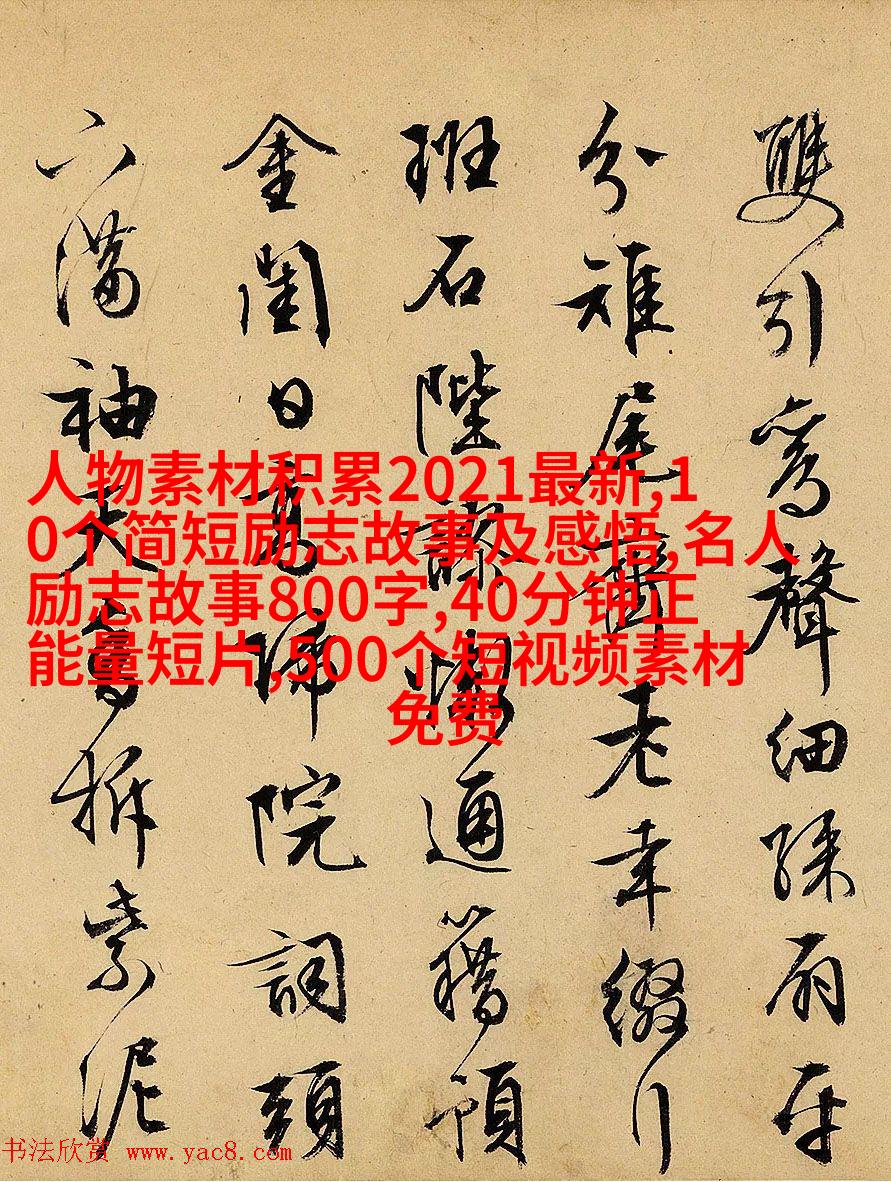 雙引鸞聲細綵扇平
分雉尾齊老幸綴行
班石陛謬慚通籍預
金閨日高歸院詞頭
下滿袖天香拆紫泥
人物素材积累2021最新,1
0个简短励志故事及感悟,名人
励志故事800字,40分钟正
能量短片,500个短视频素材
免费
书法欣赏 www.yac8.com